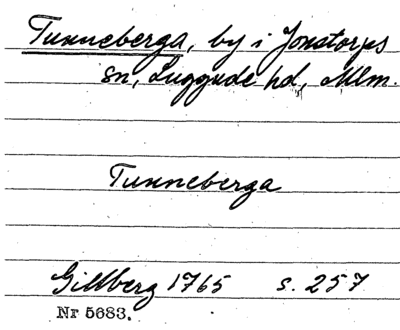 Tunneberga, by i Jonstorps
sn, Luggude hd, Mlm.
Tunneberga
Gillberg 1765 s. 257
Nr 5683.